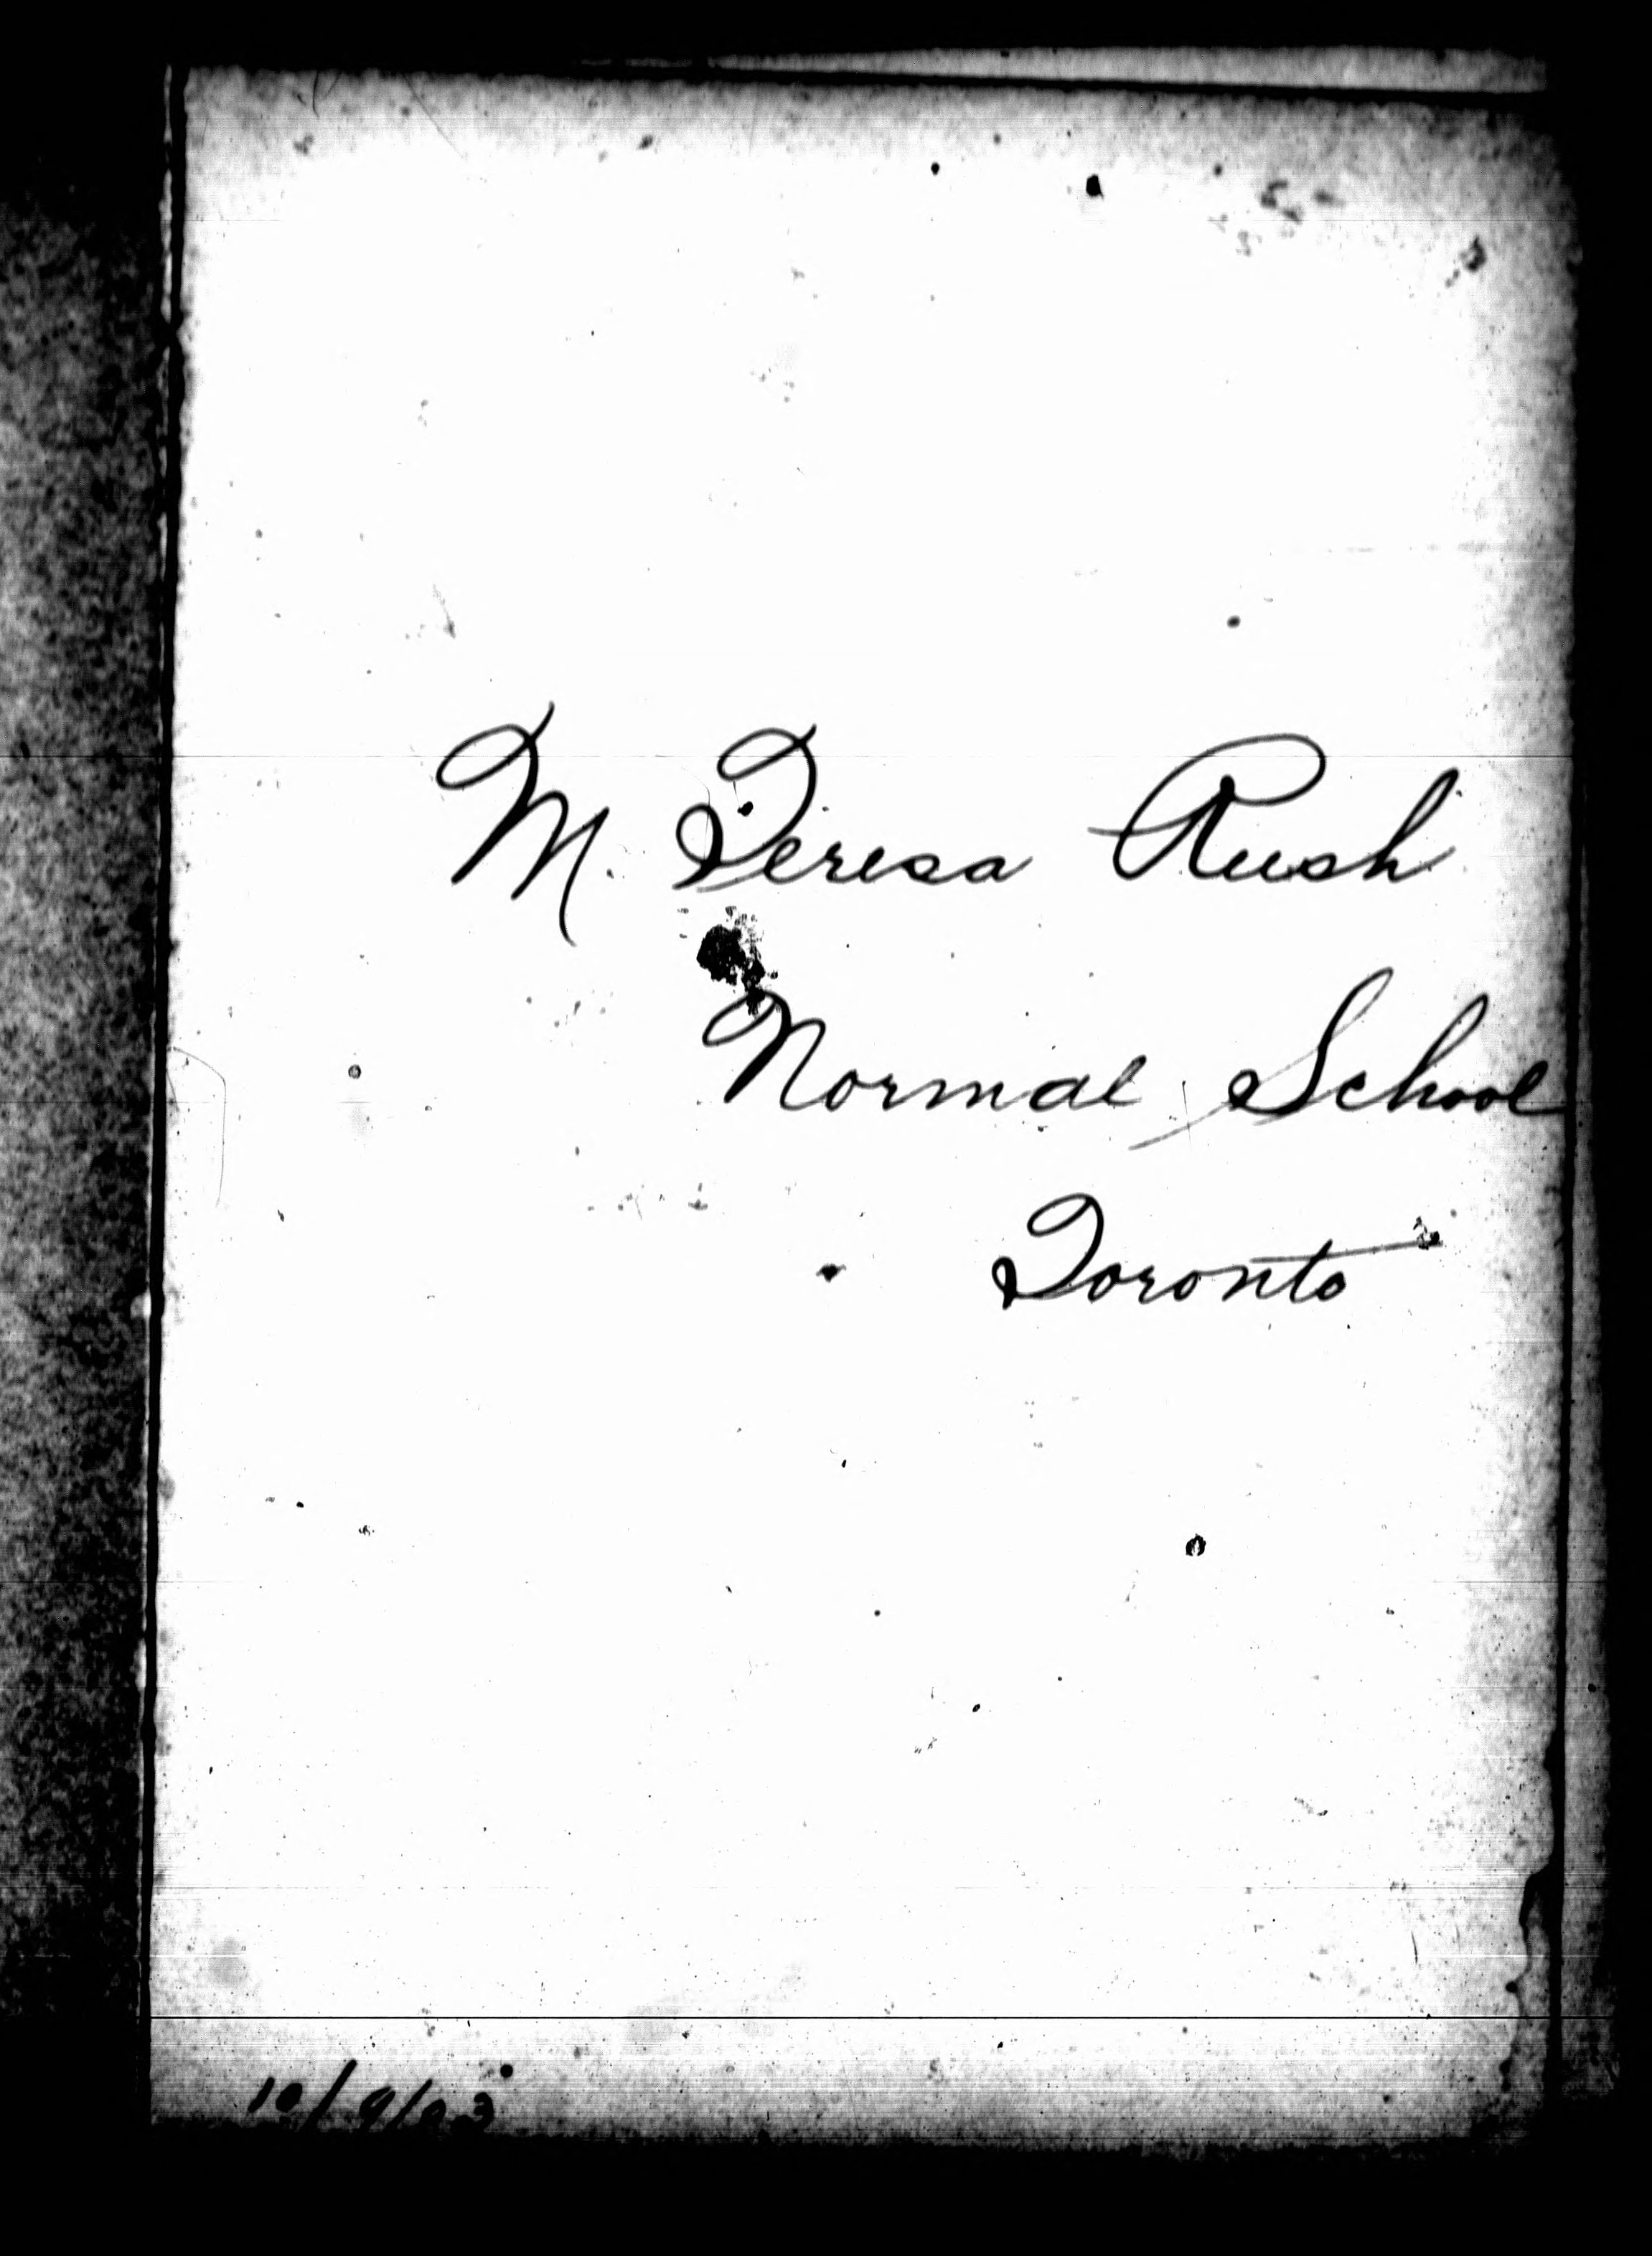 M. Teresa Rush
Normal School
Toronto
10/9/03